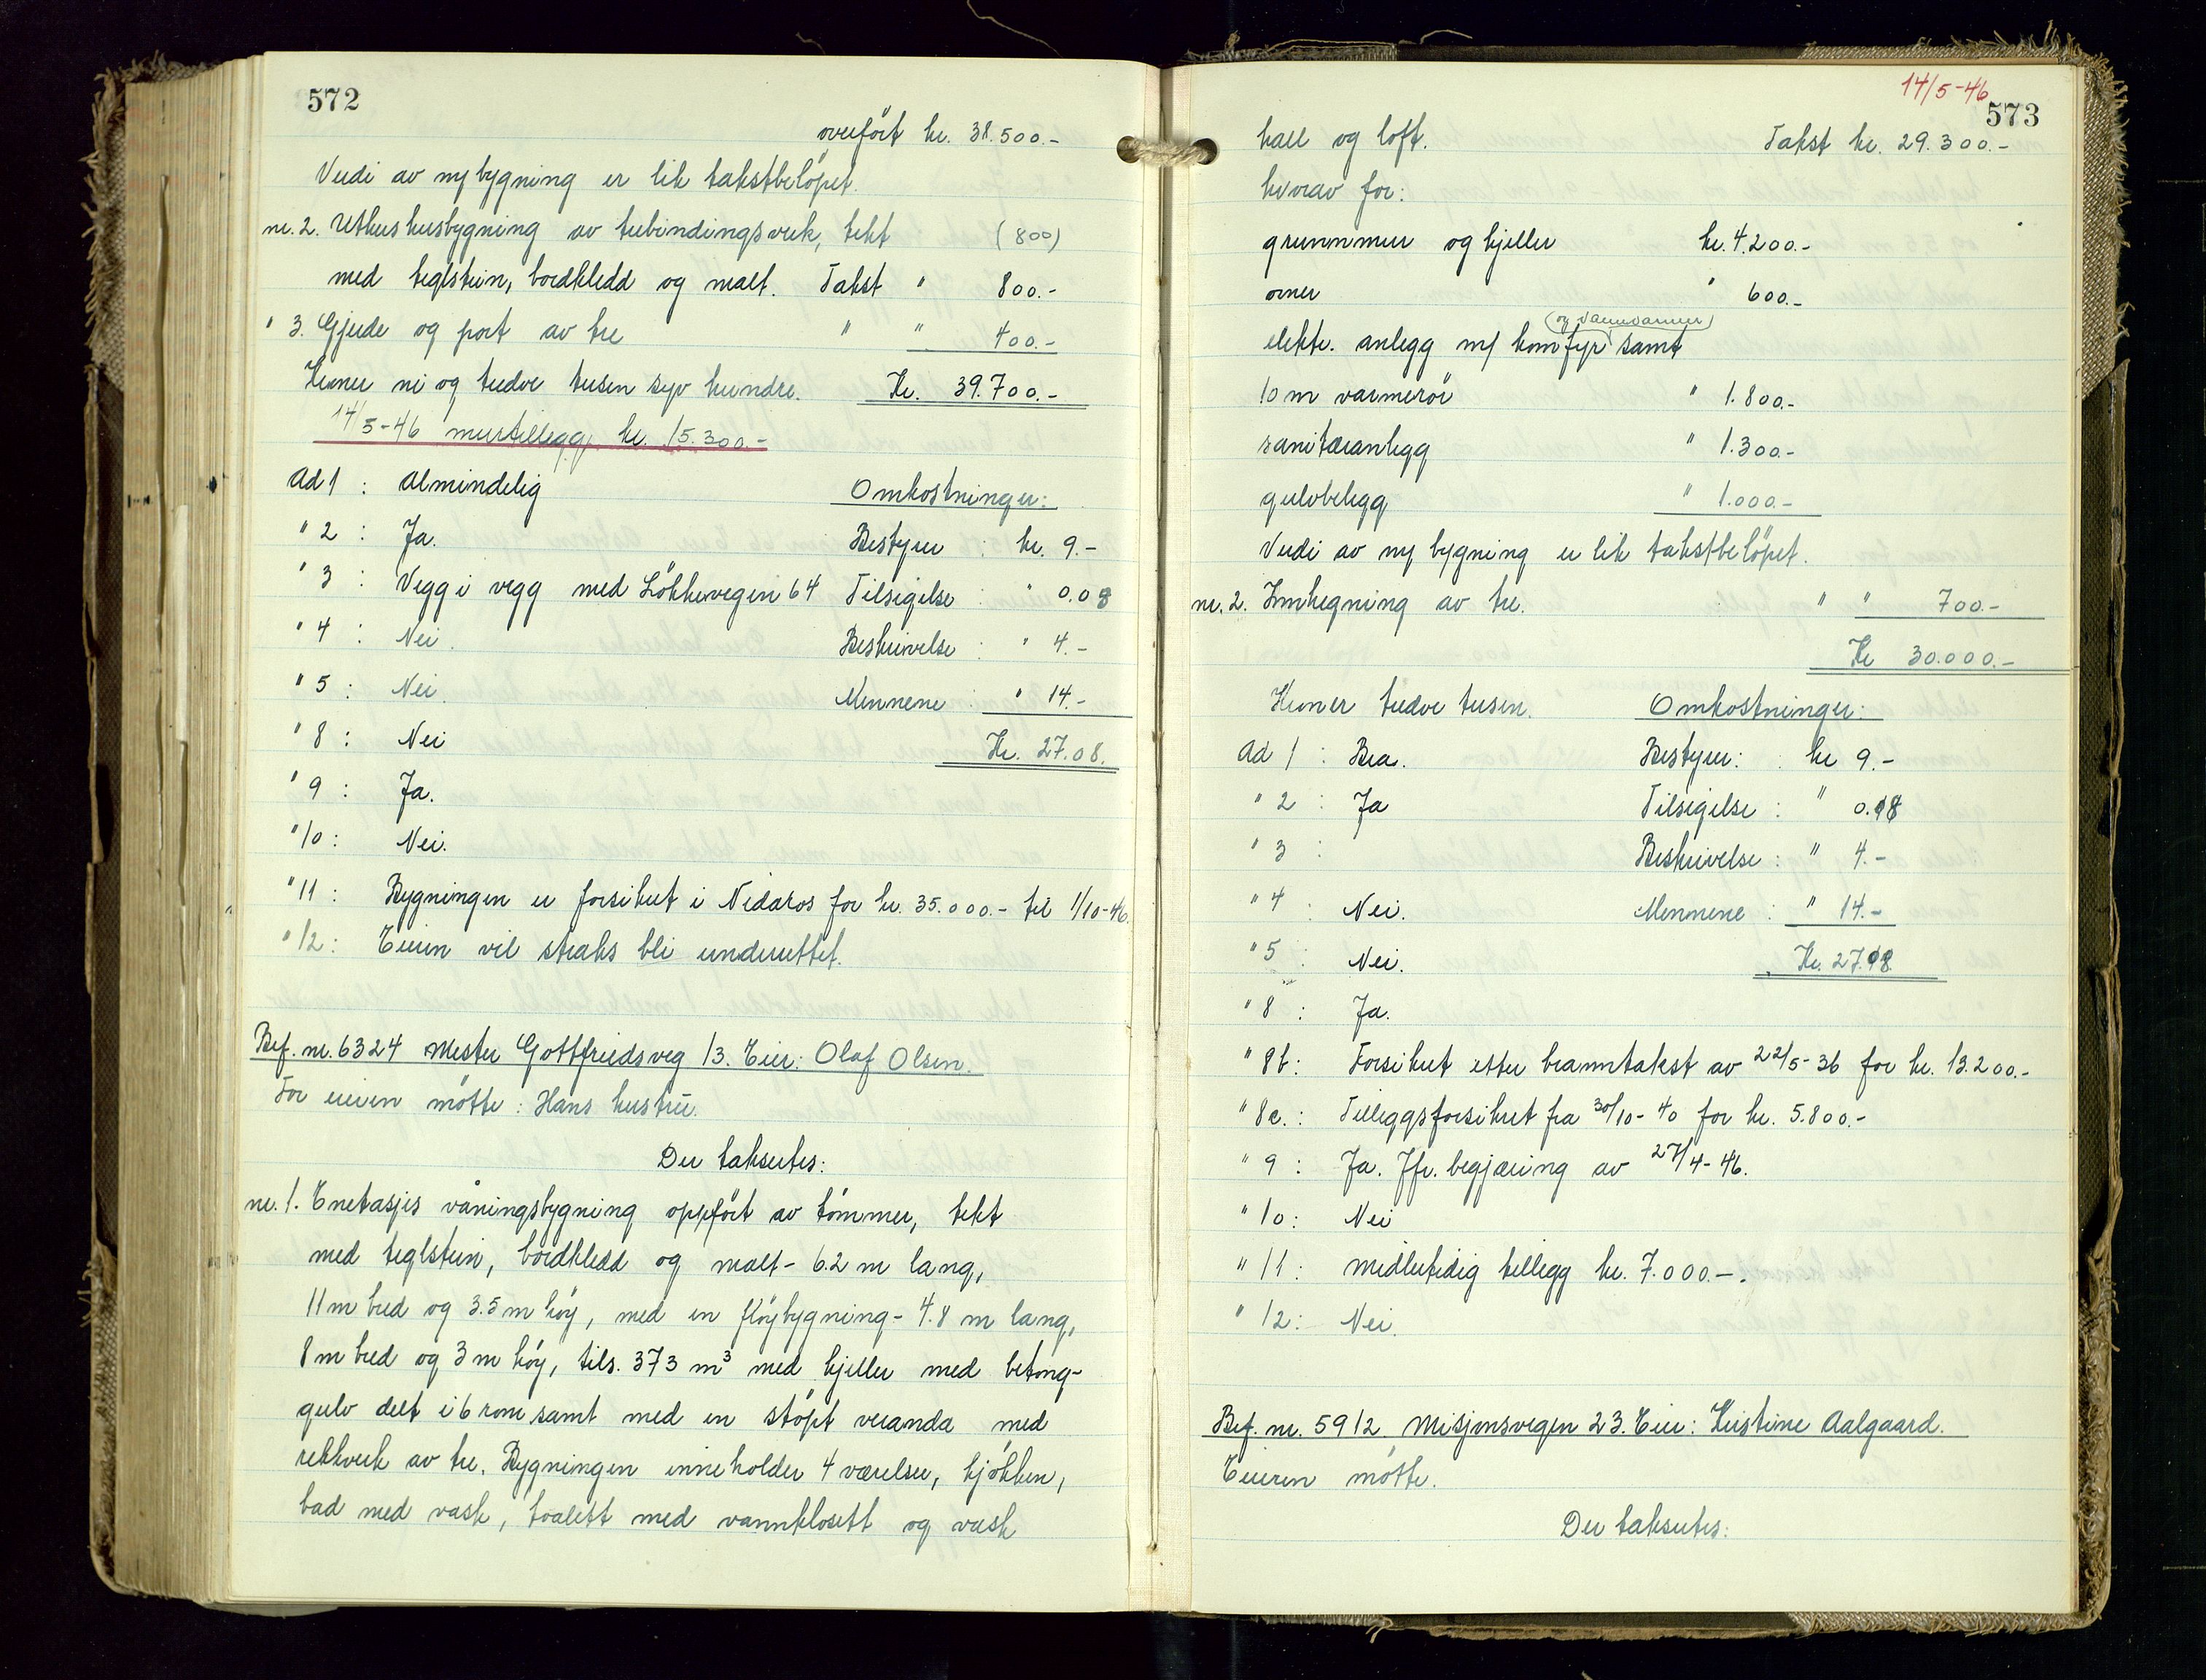 572
overført kr. 38.500.-
Verdi av ny bygning er lik takstbeløpet.
nr. 2. Uthushusbygning av trebindingsverk, tekt (800)
med teglstein, bordkledd og malt. Takst " 800.-
" 3. Gjerde og port av tre " " 400.-
Kroner ni og tredve tusen syv hundre. Kr. 39.700.-
14/5-46 murtillegg kr. 15.300.-
Ad 1 : Almindelig Omkostninger:
" 2 : Ja. Bestyrer : kr. 9.-
" 3 : Vegg i vegg med Løkkevegen 64 Tilsigelse : " 0.08
" 4 : Nei. Beskrivelse : " 4.-
" 5 : Nei. Mennene : " 14.-
" 8 : Nei Kr. 27.08.
" 9 : Ja.
" 10 : Nei.
" 11 : Bygningen er forsikret i Nidaros for kr. 35.000.- til 1/10-46.
" 12 : Eieren vil straks bli underrettet.
Bef. nr. 6324 Mester Gottfriedsveg 13. Eier: Olaf Olsen.
For eieren møtte: Hans hustru.
Der takseres:
nr. 1. Enetasjes våningsbygning oppført av tømmer, tekt
med teglstein, bordkledd og malt - 6.2 m lang,
11 m bred og 3.5 m høy, med en fløybygning - 4.8 m lang,
8 m bred og 3 m høy, tils. 373 m³ med kjeller med betong-
gulv delt i 6 rom samt med en støpt veranda med
rekkverk av tre. Bygningen inneholder 4 værelser, kjøkken,
bad med vask, toalett med vannklosett og vask
14/5-46
573
hall og loft. Takst kr. 29.300.-
hvorav for:
grunnmur og kjeller kr. 4.200.-
ovner " 600.-
(og vannvarmer)
elektr. anlegg m/ komfyr samt
10 m varmerør " 1.800.-
sanitæranlegg " 1.300.-
gulvbelegg " 1.000.-
Verdi av ny bygning er lik takstbeløpet.
nr. 2. Innhegning av tre. " " 700.-
Kr 30.000.-
Kroner tredve tusen. Omkostninger:
Ad 1 : Bra. Bestyrer: kr 9.-
" 2 : Ja Tilsigelse : " 0.18
" 3 : Beskrivelse : " 4.-
" 4 : Nei. Mennene : " 14.-
" 5 : Nei. Kr. 27.18
" 8 : Ja.
" 8b : Forsikret etter branntakst av 22/5-36 for kr. 13.200.-
" 8c. : Tilleggsforsikret fra 30/10-40 for kr. 5.800.-
" 9 : Ja. Jfr. begjæring av 27/4-46.
" 10 : Nei
" 11 : Midlertidig tillegg kr. 7.000.-.
" 12 : Nei.
Bef. nr. 5912 Misjonsvegen 23. Eier: Kristine Aalgaard.
Eieren møtte.
Der takseres: